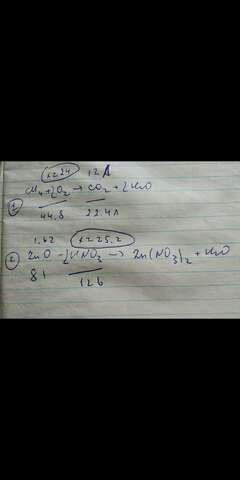 x=24 12л
CH4+2O2→CO2+2H2O
① 44.8 22.4л
1.62 x=25.2
② ZnO + 2HNO3 → Zn(NO3)2 + H2O
81 126